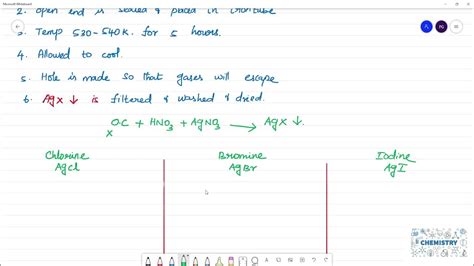 Microsoft Whiteboard
2. Open end is sealed & placed in irontube
3. Temp 530-540K. for 5 hours.
4. Allowed to cool.
5. Hole is made so that gases will escape
6. AgX ↓ is filtered & washed & dried.
O.C + HNO₃ + AgNO₃ → AgX ↓.
X
Chlorine Bromine Iodine
AgCl AgBr AgI
CHEMISTRY